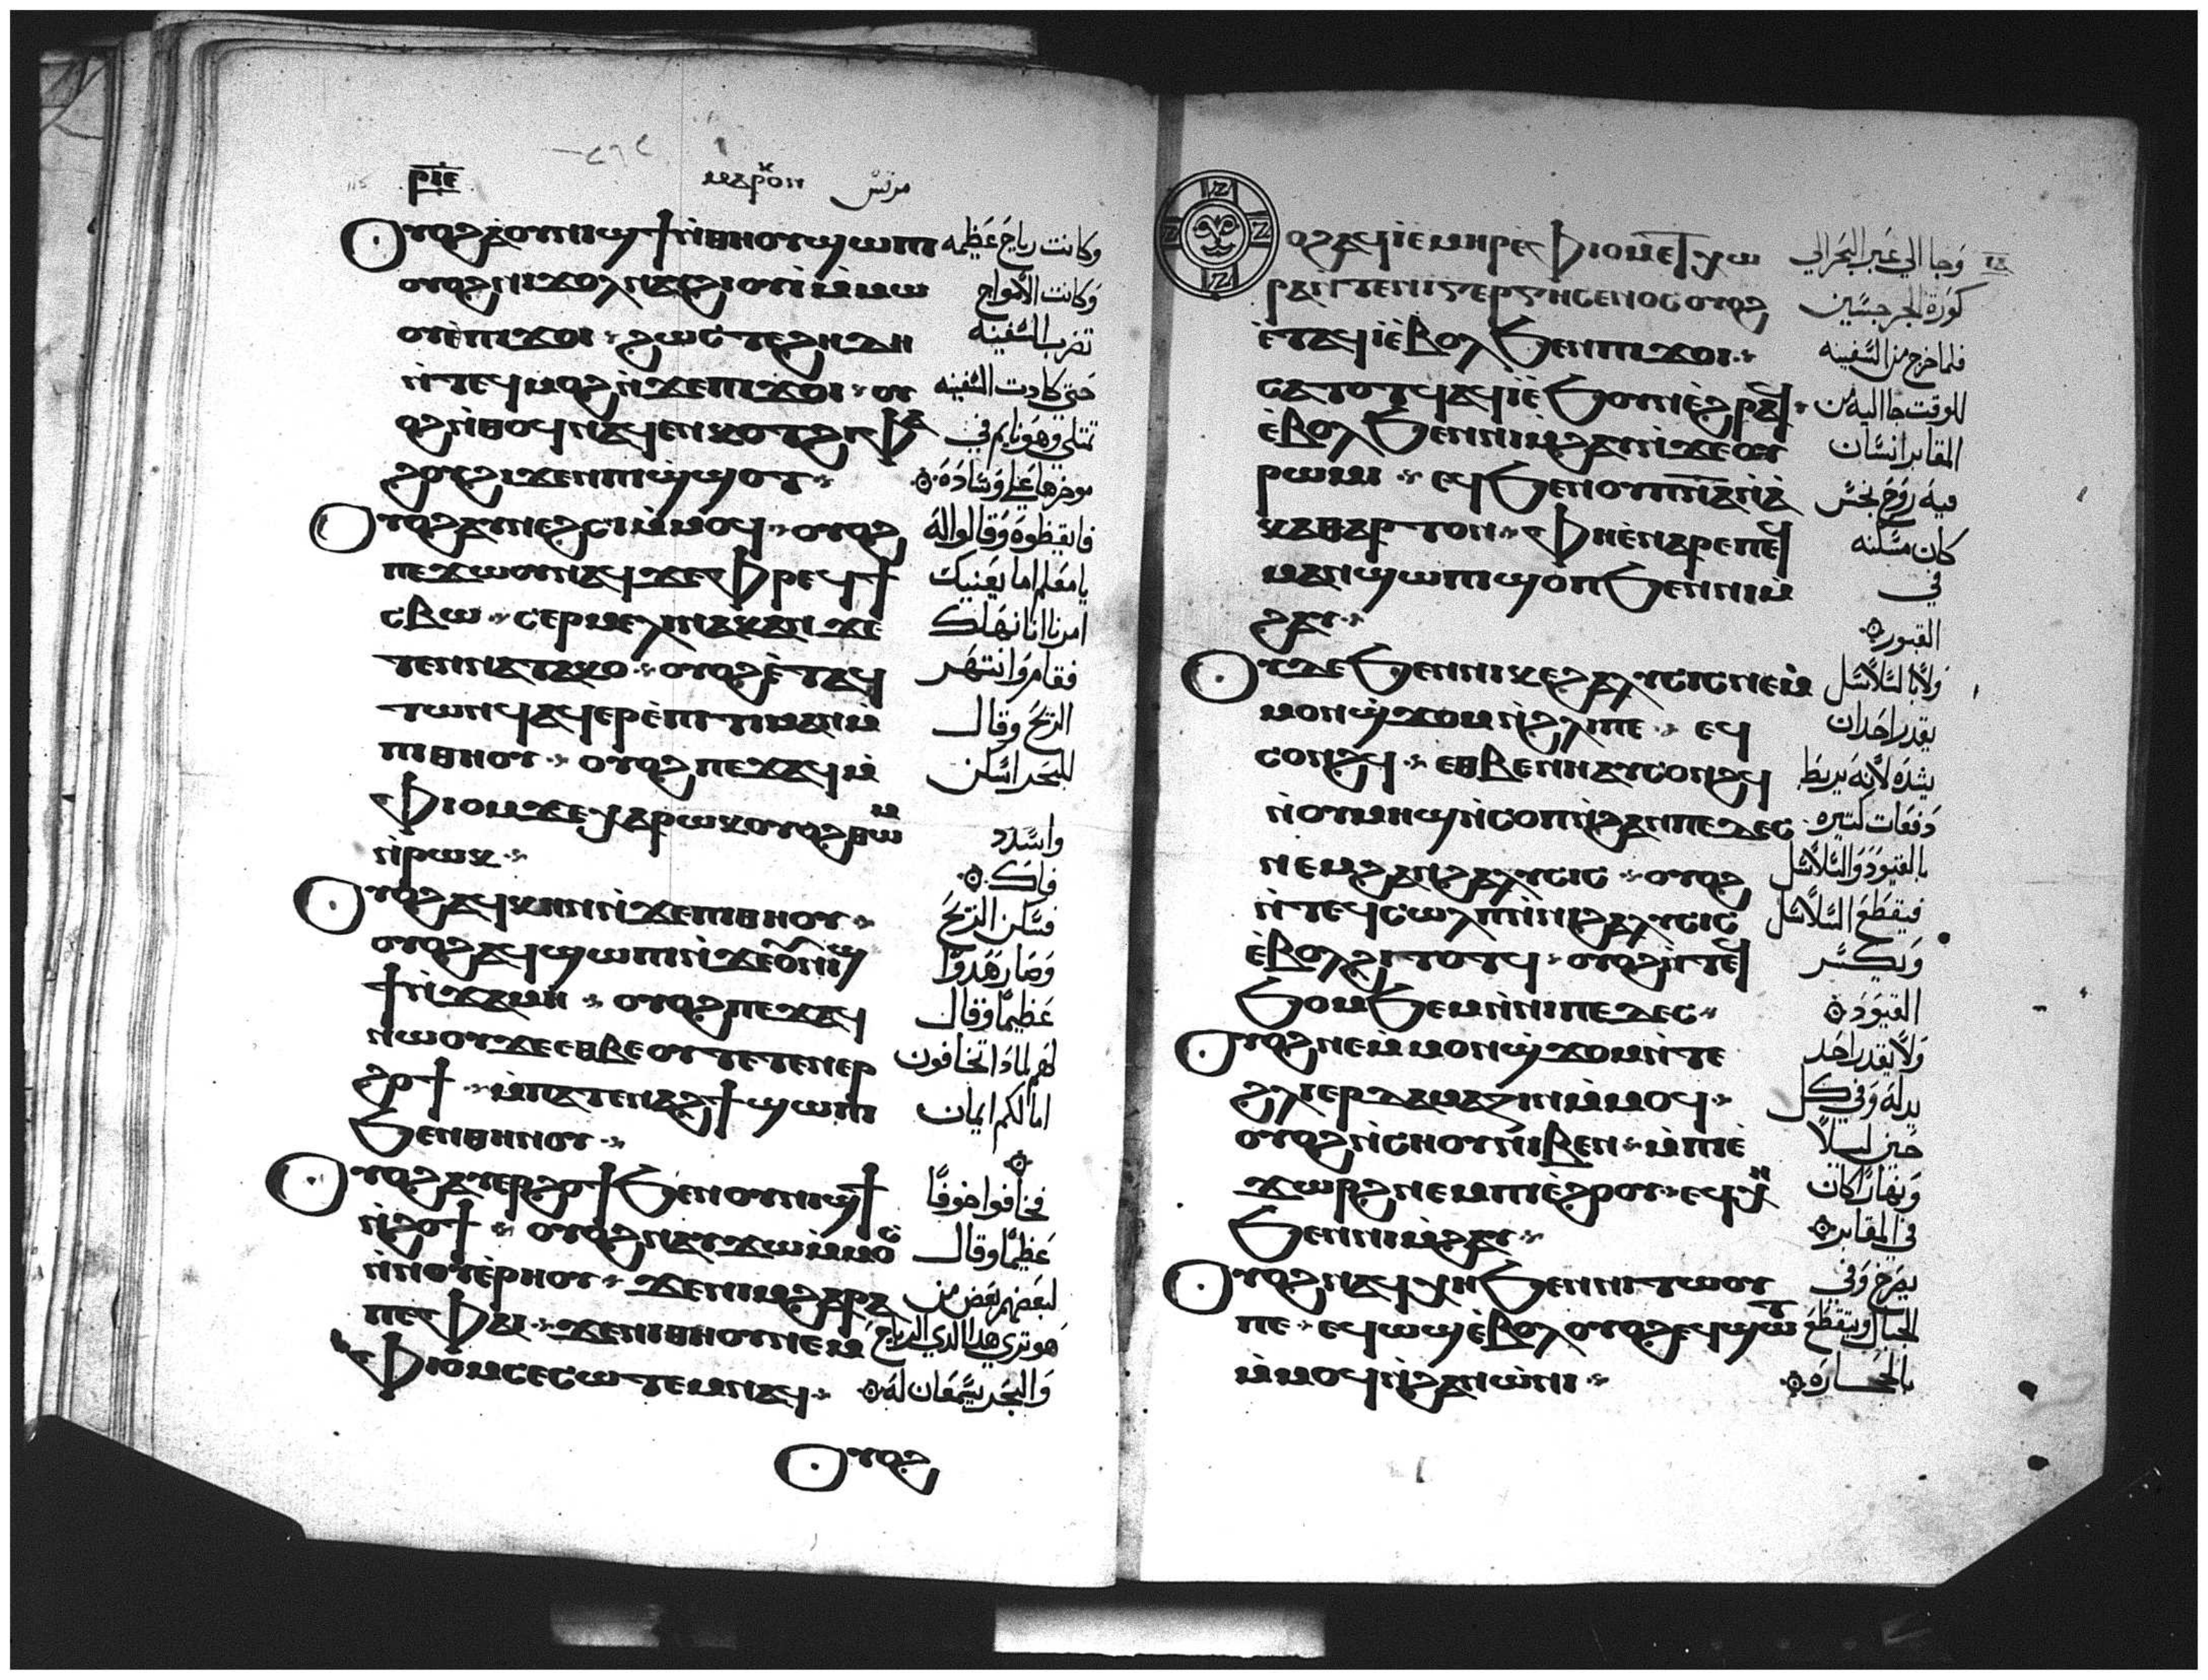 ⲣⲓⲉ ⲙⲁⲣⲕⲟⲛ مرقس
ⲟⲩⲟϩ ⲁⲟⲩⲛⲓϣϯ ⲛ̀ⲑⲏⲟⲩ ϣⲱⲡⲓ وكانت رياح عظيمه
ⲟⲩⲟϩ ⲛⲓϫⲟⲗ ⲛⲁϩⲓⲟⲩⲓ ⲙ̀ⲙⲱ وكانت الامواج
ⲟⲩ ⲉ̀ⲡⲓϫⲟⲓ ϩⲱⲥⲧⲉ ϩⲏⲇⲏ تضرب السفينه
ⲛ̀ⲧⲉϥⲙⲟϩ ⲛ̀ϫⲉⲡⲓϫⲟⲓ ⲟⲩ حتي كادت السفينه
ⲟϩ ⲛ̀ⲑⲟϥ ⲛⲁϥⲉⲛⲕⲟⲧ ϩⲓⲫⲁ تمتلي وهو نايم في
ϩⲟⲩ ϩⲓϫⲉⲛ ⲡⲓϣ̀ϣⲟⲧ موخرها علي وساده
ⲟⲩⲟϩ ⲁⲩⲛⲉϩⲥⲓ ⲙ̀ⲙⲟϥ ⲟⲩⲟϩ فايقظوه وقالوا له
ⲡⲉϫⲱⲟⲩ ⲛⲁϥ ϫⲉ ⲫⲣⲉϥϯ يا معلم اما يعنيك
ⲥⲃⲱ ⲥⲉⲣⲙⲉⲗⲓⲛⲁⲕ ⲁⲛ ϫⲉ امرنا اننا نهلك
ⲧⲉⲛⲛⲁⲧⲁⲕⲟ ⲟⲩⲟϩ ⲉ̀ⲧⲁϥ فقام وانتهر
ⲧⲱⲛϥ ⲁϥⲉⲣⲉ̀ⲡⲓⲧⲓⲙⲁⲛ ⲙ̀ الريح وقال
ⲡⲓⲑⲏⲟⲩ ⲟⲩⲟϩ ⲡⲉϫⲁϥ ⲙ̀ للبحر اسكن
ⲫⲓⲟⲙ ϫⲉ ⲭⲁⲣⲱⲕ ⲟⲩⲟϩ ⲑⲱⲙ واسدد
ⲛ̀ⲣⲱⲕ فاك
ⲟⲩⲟϩ ⲁϥⲕⲏⲛ ⲛ̀ϫⲉⲡⲓⲑⲏⲟⲩ فسكن الريح
ⲟⲩⲟϩ ⲁϥϣⲱⲡⲓ ⲛ̀ϫⲉⲟⲩⲛⲓϣ وصار هدوا
ϯ ⲛ̀ϫⲁⲙⲏ ⲟⲩⲟϩ ⲡⲉϫⲁϥ عظيما وقال
ⲛⲱⲟⲩ ϫⲉ ⲉⲑⲃⲉ ⲟⲩ ⲧⲉⲧⲉⲛⲉⲣ لهم لمادا تخافون
ϩⲟϯ ⲙ̀ⲡⲁⲧⲉⲛⲁϩϯ ϣⲱⲡⲓ اما لكم ايمان
ϧⲉⲛⲑⲏⲛⲟⲩ
ⲟⲩⲟϩ ⲁⲩⲉⲣϩⲟϯ ϧⲉⲛ ⲟⲩⲛⲓϣϯ فخافوا خوفا
ⲛ̀ϩⲟϯ ⲟⲩⲟϩ ⲛⲁⲩϫⲱ ⲙ̀ⲙⲟⲥ عظيما وقال
ⲛ̀ⲛⲟⲩⲉ̀ⲣⲏⲟⲩ ϫⲉ ⲛⲓⲙ ϩⲁⲣⲁ لبعضهم بعض من
ⲡⲉ ⲫⲁⲓ ϫⲉ ⲛⲓⲑⲏⲟⲩ ⲛⲉⲙ هو تري هدا الدي الرياح
ⲫⲓⲟⲙ ⲥⲉⲥⲱⲧⲉⲙ ⲛⲁϥ والبحر يسمعان له
ⲟⲩⲟϩ
ⲟϩ ⲁϥⲓ̀ ⲉ̀ⲙⲏⲣ ⲉ̀ⲫⲓⲟⲙ ⲉ̀ϯⲭⲱ وجا الي عبر البحر الي
ⲣⲁ ⲛ̀ⲧⲉ ⲛⲓⲅⲉⲣⲅⲏⲥⲉⲛⲟⲥ ⲟⲩⲟϩ كورة الجرجسيين
ⲉ̀ⲧⲁϥⲓ̀ ⲉ̀ⲃⲟⲗ ϧⲉⲛ ⲡⲓϫⲟⲓ فلما خرج من السفينه
ⲥⲁⲧⲟⲧϥ ⲁϥⲓ̀ ⲉ̀ϧⲟⲩⲛ ⲉ̀ϩⲣⲁϥ للوقت جا اليه من
ⲉ̀ⲃⲟⲗ ϧⲉⲛ ⲛⲓⲙ̀ϩⲁⲩ ⲛ̀ϫⲉⲟⲩ المقابر انسان
ⲣⲱⲙⲓ ⲉϥϧⲉⲛ ⲟⲩⲡ̅ⲛ̅ⲁ̅ ⲛ̀ⲁ̀ فيه روح نجس
ⲕⲁⲑⲁⲣⲧⲟⲛ ⲫⲏ ⲉ̀ⲛⲁⲣⲉ ⲡⲉϥ كان مسكنه
ⲙⲁⲛϣⲱⲡⲓ ϣⲟⲡ ϧⲉⲛ ⲛⲓⲙ̀ في
ϩⲁⲩ القبور
ⲟⲩⲇⲉ ϧⲉⲛ ⲛⲓⲕⲉϩⲁⲗⲩⲥⲓⲥ ⲛⲉⲙ̀ ولا بالسلاسل
ⲙⲟⲛ ϣ̀ϫⲟⲙ ⲛ̀ϩⲗⲓ ⲡⲉ ⲉϥ يقدر احد ان
ⲥⲟⲛϩϥ ⲉⲑⲃⲉ ⲛⲏ ⲁⲩⲥⲟⲛϩϥ يشده لانه يربط
ⲛ̀ⲟⲩⲙⲏϣ ⲛ̀ⲥⲟⲡ ⲛ̀ϩⲁⲛⲡⲉⲇⲉⲥ دفعات كتيره
ⲛⲉⲙ ϩⲁⲛϩⲁⲗⲩⲥⲓⲥ ⲟⲩⲟϩ بالقيود والسلاسل
ⲛ̀ⲧⲉϥⲥⲱⲗⲡ ⲛ̀ⲛⲓϩⲁⲗⲩⲥⲓⲥ فيقطع السلاسل
ⲉ̀ⲃⲟⲗ ϩⲓⲧⲟⲧϥ ⲟⲩⲟϩ ⲛ̀ⲧⲉϥ ويكسر
ϧⲟⲙϧⲉⲙ ⲛ̀ⲛⲓⲡⲉⲇⲉⲥ القيود
ⲟⲩⲟϩ ⲛⲉ ⲙ̀ⲙⲟⲛ ϣ̀ϫⲟⲙ ⲛ̀ⲧⲉ ولا يقدر احد
ϩⲗⲓ ⲉⲣⲇⲁⲙⲁⲍⲓⲛ ⲙ̀ⲙⲟϥ يدله وفي كل
ⲟⲩⲟϩ ⲛ̀ⲥⲏⲟⲩ ⲛⲓⲃⲉⲛ ⲙ̀ⲡⲓⲉ̀ حين ليلا
ϫⲱⲣϩ ⲛⲉⲙ ⲡⲓⲉ̀ϩⲟⲟⲩ ⲉϥⲭⲏ ونهارا كان
ϧⲉⲛ ⲛⲓⲙ̀ϩⲁⲩ في المقابر
ⲟⲩⲟϩ ⲛⲁϥⲭⲏ ϧⲉⲛ ⲛⲓⲧⲱⲟⲩ يصرخ وفي
ⲡⲉ ⲉϥⲱϣ ⲉ̀ⲃⲟⲗ ⲟⲩⲟϩ ⲉϥϣⲱⲧ الجبال ويتقطع
ⲙ̀ⲙⲟϥ ⲛ̀ϩⲁⲛⲱ̀ⲛⲓ بالحجاره